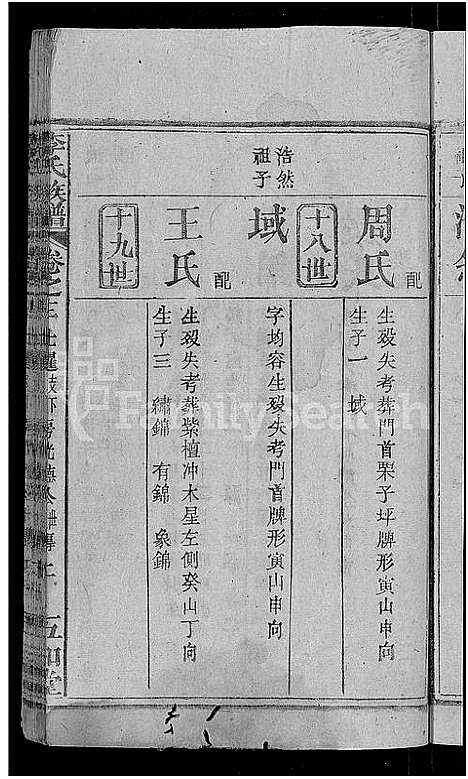 配
周氏
生殁失考葬門首栗子坪牌形寅山申向
生子一 域
十八世
浩然
祖子
域
字均容生殁失考門首牌形寅山申向
配
王氏
生殁失考葬紫檀冲木星左側癸山丁向
生子三 繡錦 有錦 象錦
十九世
李氏族譜
卷之三
五和堂
FamilySearch